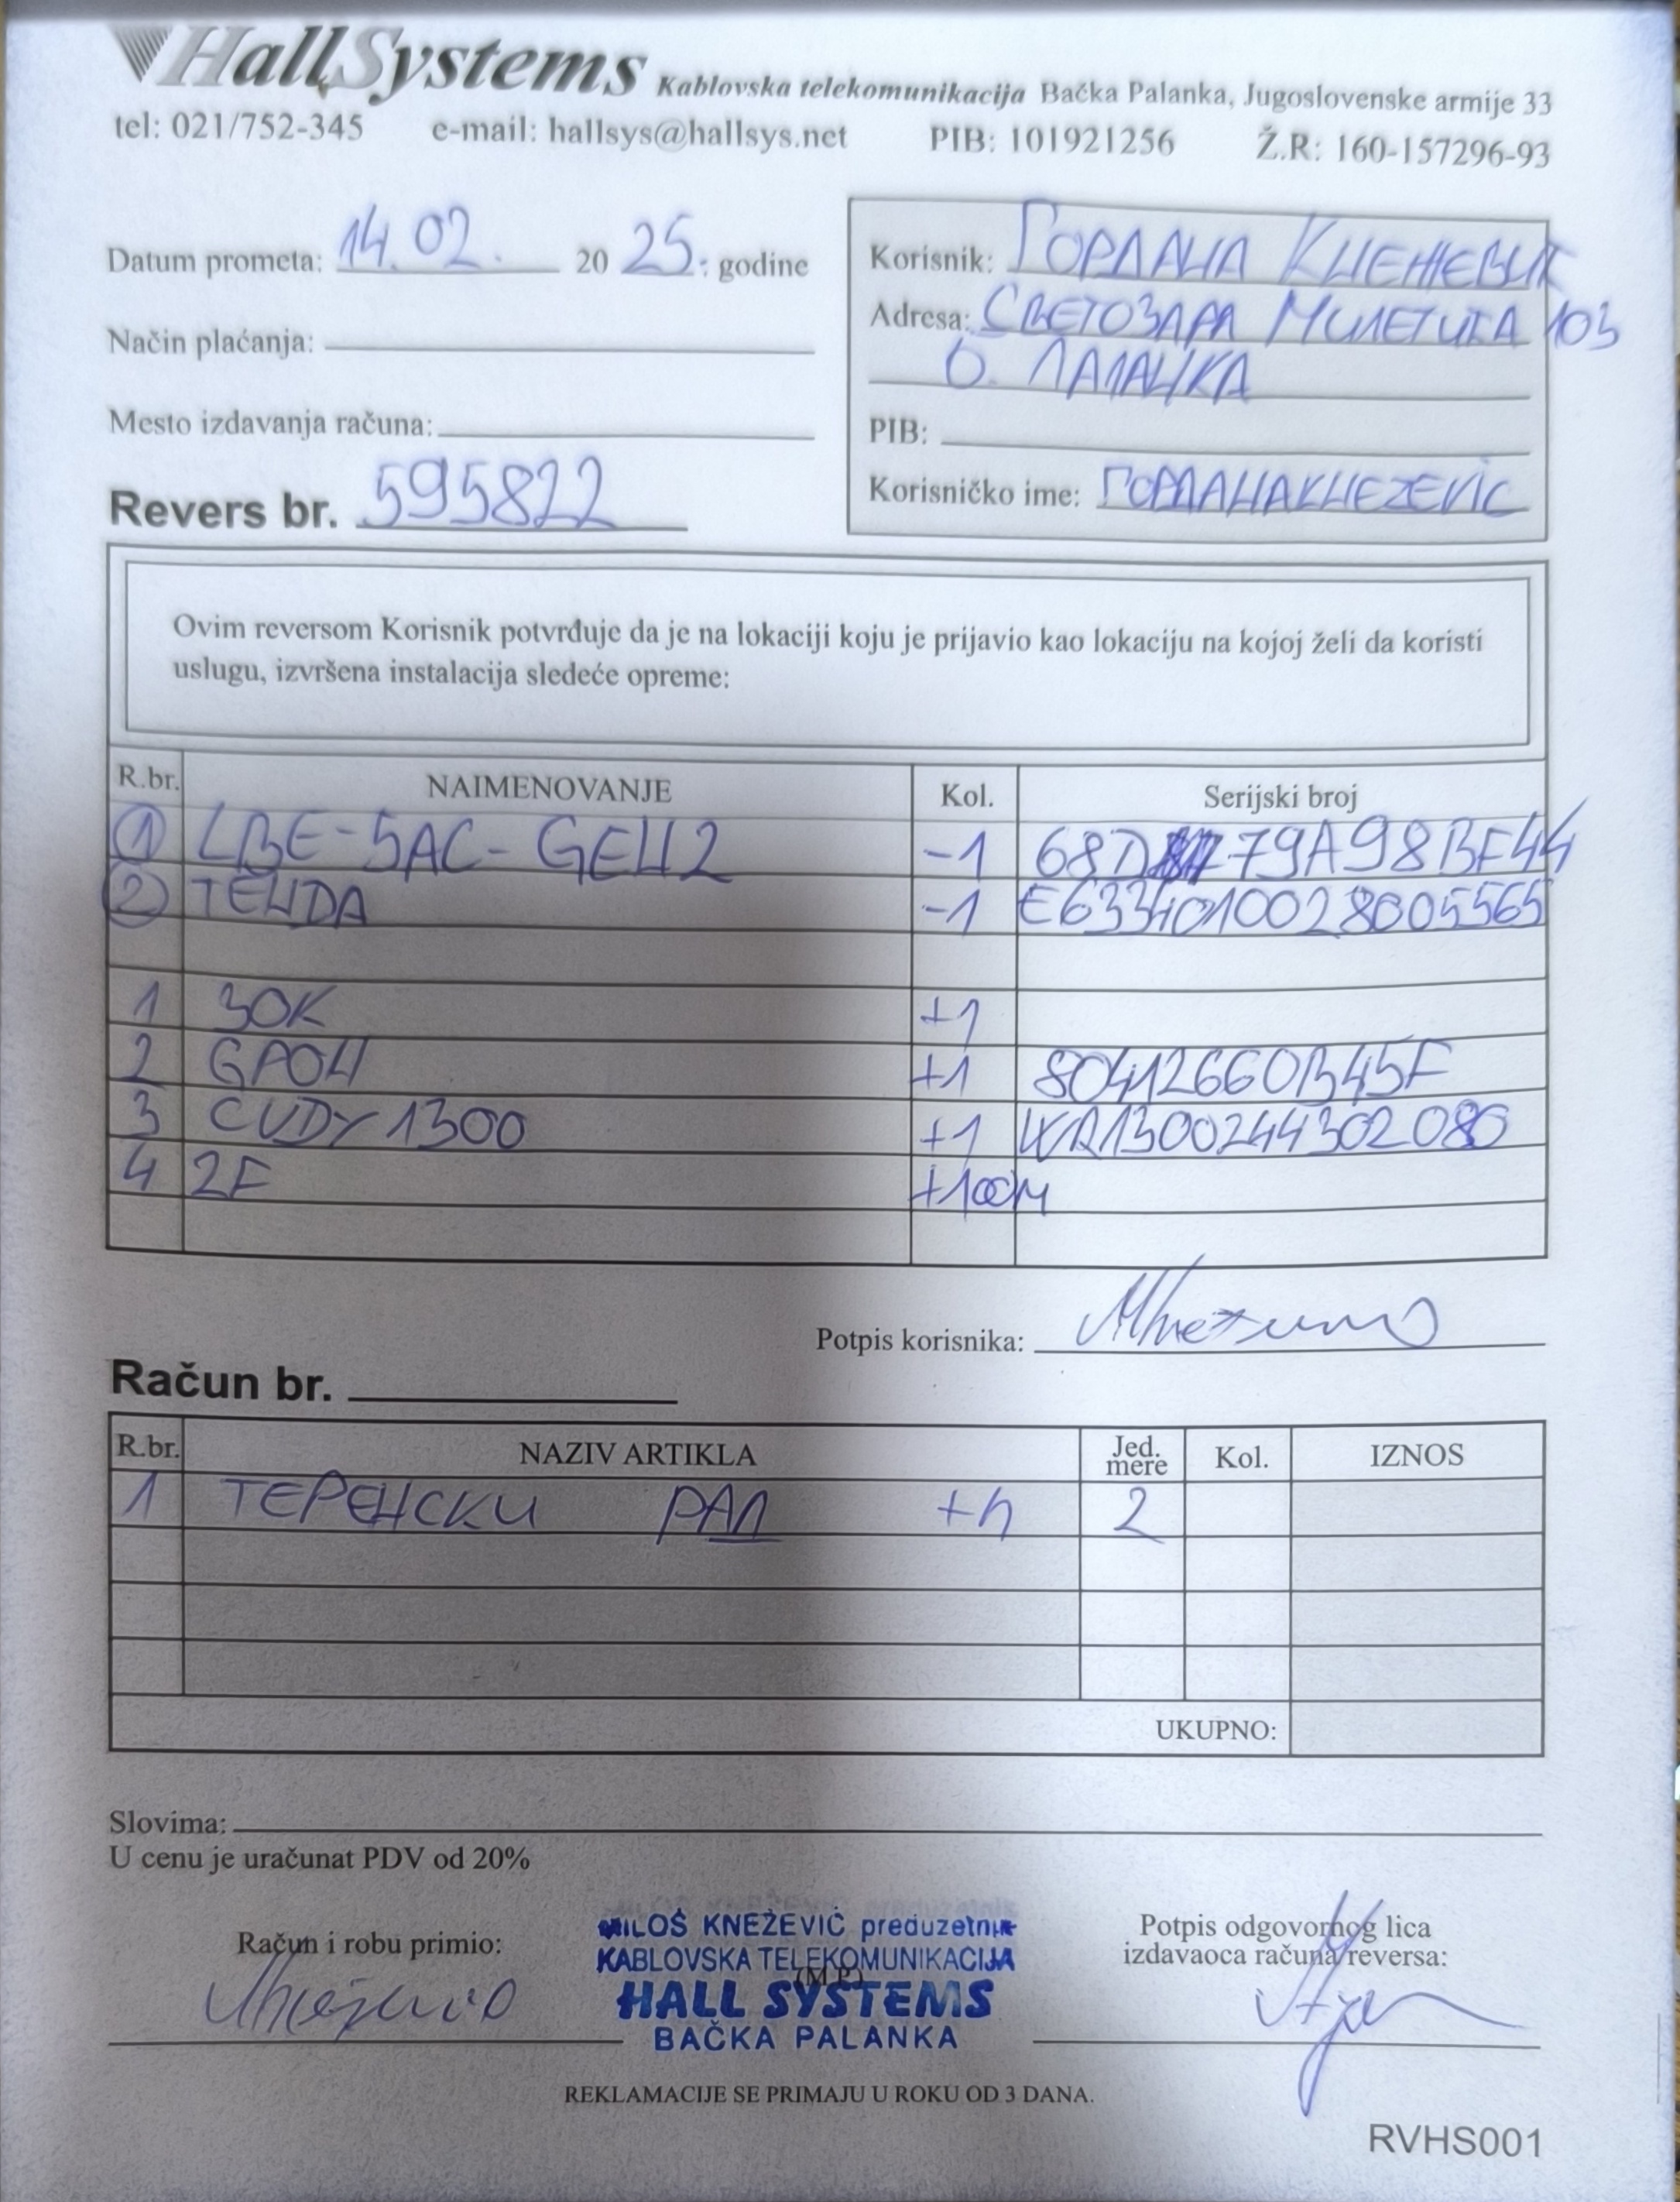 HallSystems Kablovska telekomunikacija Bačka Palanka, Jugoslovenske armije 33
tel: 021/752-345 e-mail: hallsys@hallsys.net PIB: 101921256 Ž.R: 160-157296-93
Datum prometa: 14.02. 2025. godine
Način plaćanja:
Mesto izdavanja računa:
Revers br. 595822
Korisnik: ГОРДАНА КНЕЖЕВИЋ
Adresa: СВЕТОЗАРА МИЛЕТИЋА 103
Б. ПАЛАНКА
PIB:
Korisničko ime: ГОРДАНАКНЕZEVIC
Ovim reversom Korisnik potvrđuje da je na lokaciji koju je prijavio kao lokaciju na kojoj želi da koristi
uslugu, izvršena instalacija sledeće opreme:
R.br. NAIMENOVANJE Kol. Serijski broj
1 LBE-5AC-GEН2 -1
2 TEНDA -1 E6334010028005565
1 ЗОК +1
2 GPOН +1 80412660B45F
3 CUDY 1300 +1 WR1300244302080
4 2F +100М
Potpis korisnika:
Račun br.
R.br. NAZIV ARTIKLA Jed. mere Kol. IZNOS
1 ТЕРЕНСКИ РАД +h 2
UKUPNO:
Slovima:
U cenu je uračunat PDV od 20%
Račun i robu primio:
MILOŠ KNEŽEVIĆ preduzetnik
KABLOVSKA TELEKOMUNIKACIJA
(M.P.)
HALL SYSTEMS
BAČKA PALANKA
Potpis odgovornog lica
izdavaoca računa/reversa:
REKLAMACIJE SE PRIMAJU U ROKU OD 3 DANA.
RVHS001